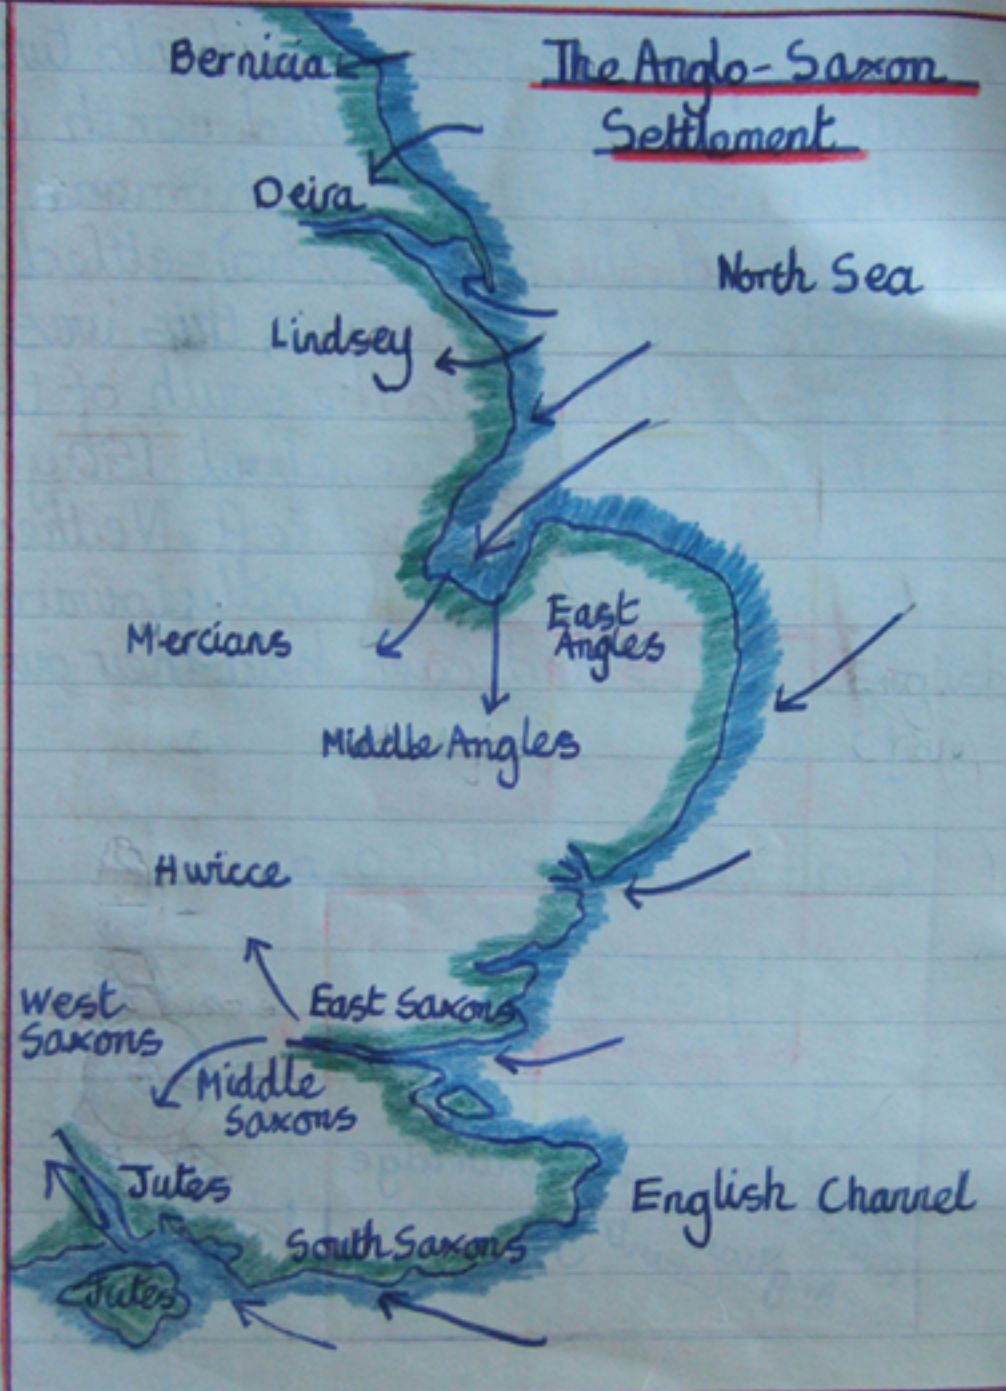 The Anglo-Saxon
Settlement
Bernicia
Deira
North Sea
Lindsey
East
Angles
Mercians
Middle Angles
Hwicce
West
Saxons
East Saxons
Middle
Saxons
Jutes
English Channel
South Saxons
Jutes